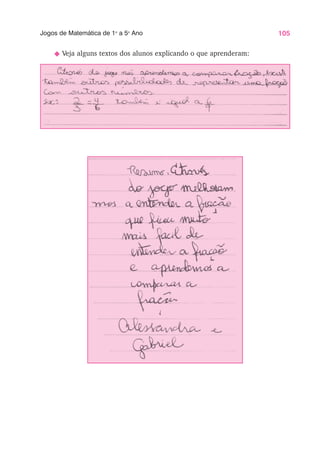 Jogos de Matemática de 1º a 5º Ano 105
Veja alguns textos dos alunos explicando o que aprenderam:
Através do jogo nós aprendemos a comparar fração,
também outras possibilidades de representar uma fração
com outros números
ex: 2/3 = 4/6 também é igual a
Resumo, Através
do jogo melhoram
mos a entender a fração
que ficou muito
mais facil de
entender a fração
e aprendemos a
comparar a
fração
Alessandra e
Gabriel